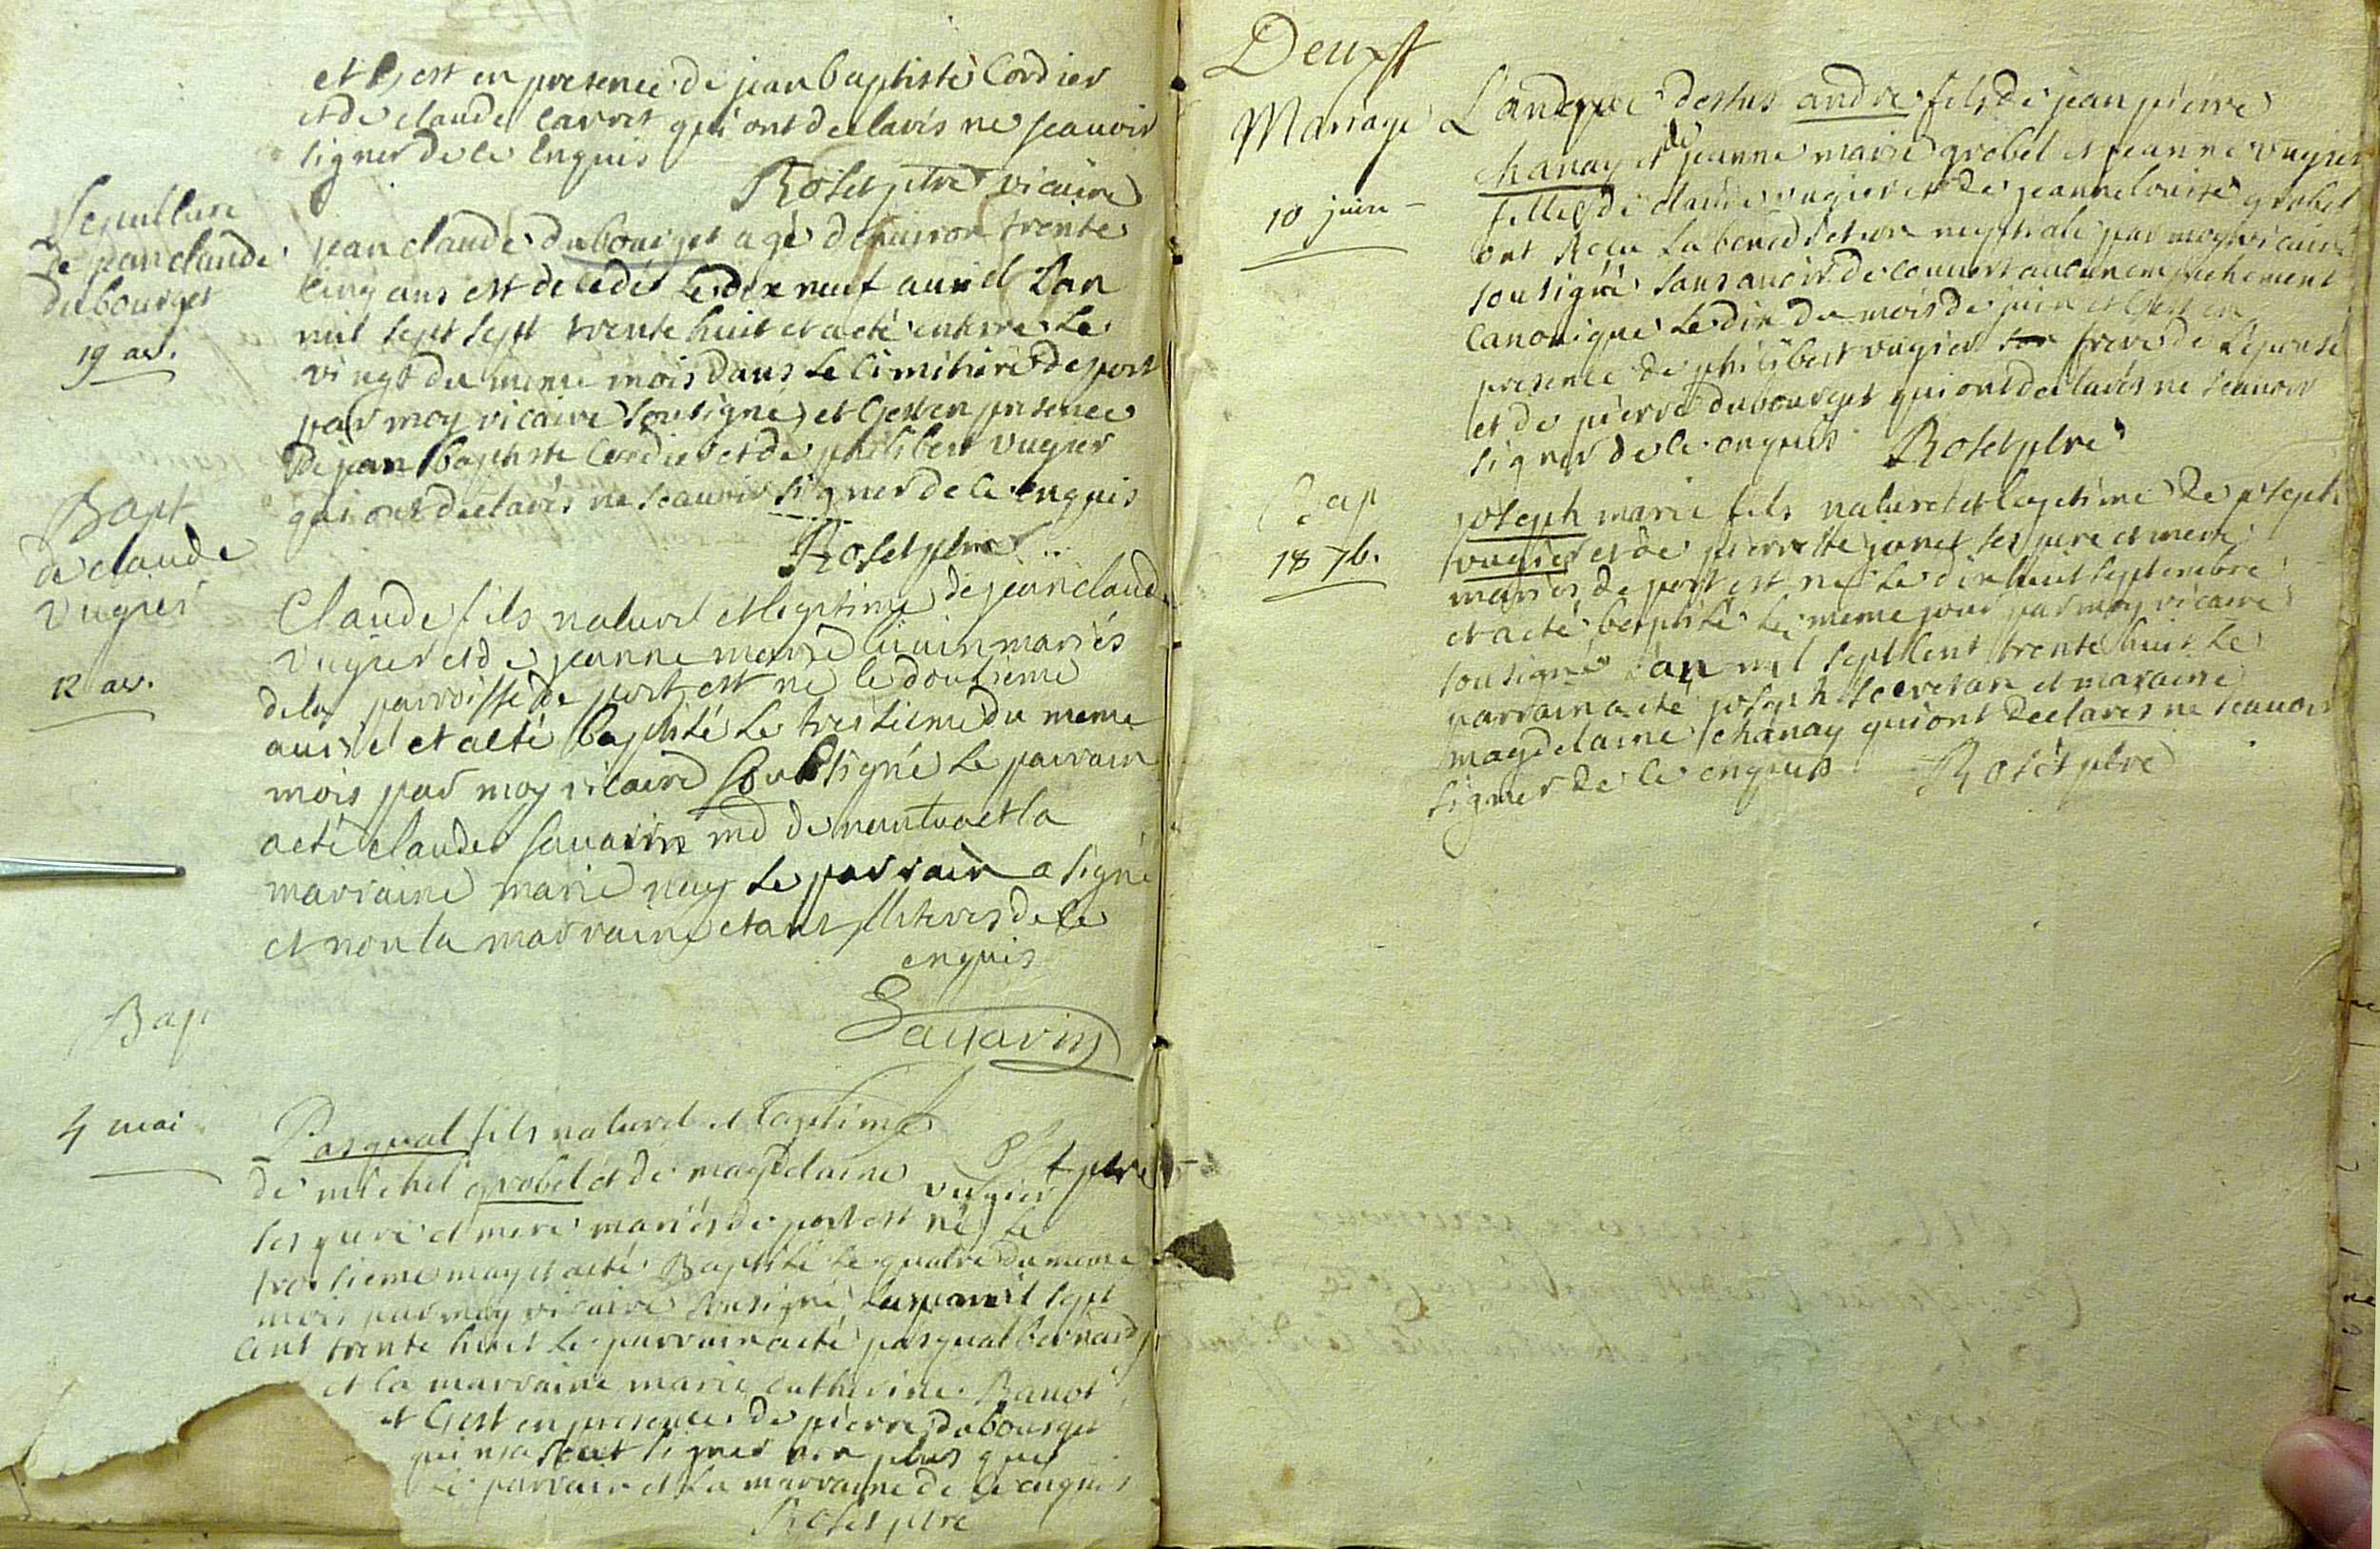 et c'est en presence de jean baptiste Cordier
et de claude carret qui ont declarés ne scauoir
signer de ce enquis
Roset ptre vicaire
Sepulture
de jean claude
dubourget
19 av.
jean claude dubourget agé denuiron trente
cinq ans est decedé le dix neuf auril L'an
mil sept sept trente huit et a eté enterré le
vingt du meme mois dans le cimitiere de port
par moy vicaire sousigné, et c'est en presence
De jean baptiste Cordier et de philibert vugier
qui ont declarés ne scauoir signer de ce enquis
Roset ptre
Bapt
de claude
Vugier
12 av.
Claude fils naturel et legitime de jean claude
Vugier et de jeanne marie mariés
de la parroisse de port est né le dousieme
auril et a eté baptisé le tresieme du meme
mois par moy vicaire soubsigné le parrain
a eté claude sauarin md de nantua et la
marraine marie nuy le parrain a signé
et non la marraine etant de ce
enquis
Sauarin
Bap
4 mai
Pasqual fils naturel et legitime
ptre
de michel grobel et de magdelaine vugier
ses pere et mere mariés de port est né le
troisieme may et a eté Baptisé le quatre du meme
mois par moy vicaire sousigné mil sept
cent trente huit le parrain a eté pasqual bernard
et la marraine marie catherine Bauot
et c'est en presence de pierre dubourget
qui n'a sceut signer non plus que
le parrain et la marraine de ce enquis
Roset ptre
Deux
Mariage
10 juin
L'an que dessus andre fils de jean pierre
chanay et de jeanne marie grobel et jeanne vugier
fille de claude vugier et de jeanne louise grobel
ont Reçu la benediction nuptiale par moy vicaire
sousigné sans auoir decouuert aucun empechement
canonique le dix du mois de juin et c'est en
presence de philibert vugier son frere de l'epouse
et de pierre dubourget qui ont declarés ne scauoir
signer de ce enquis Roset ptre
Bap
18 7b.
joseph marie fils naturel et legitime de joseph
vugier et de pierrette janet ses pere et mere
mariés de port est né le dix huit septembre
et a eté baptisé le meme jour par moy vicaire
sousigné l'an mil sept cent trente huit le
parrain a eté joseph et maraine
magdelaine chanay qui ont declarés ne scauoir
signer de ce enquis Roset ptre